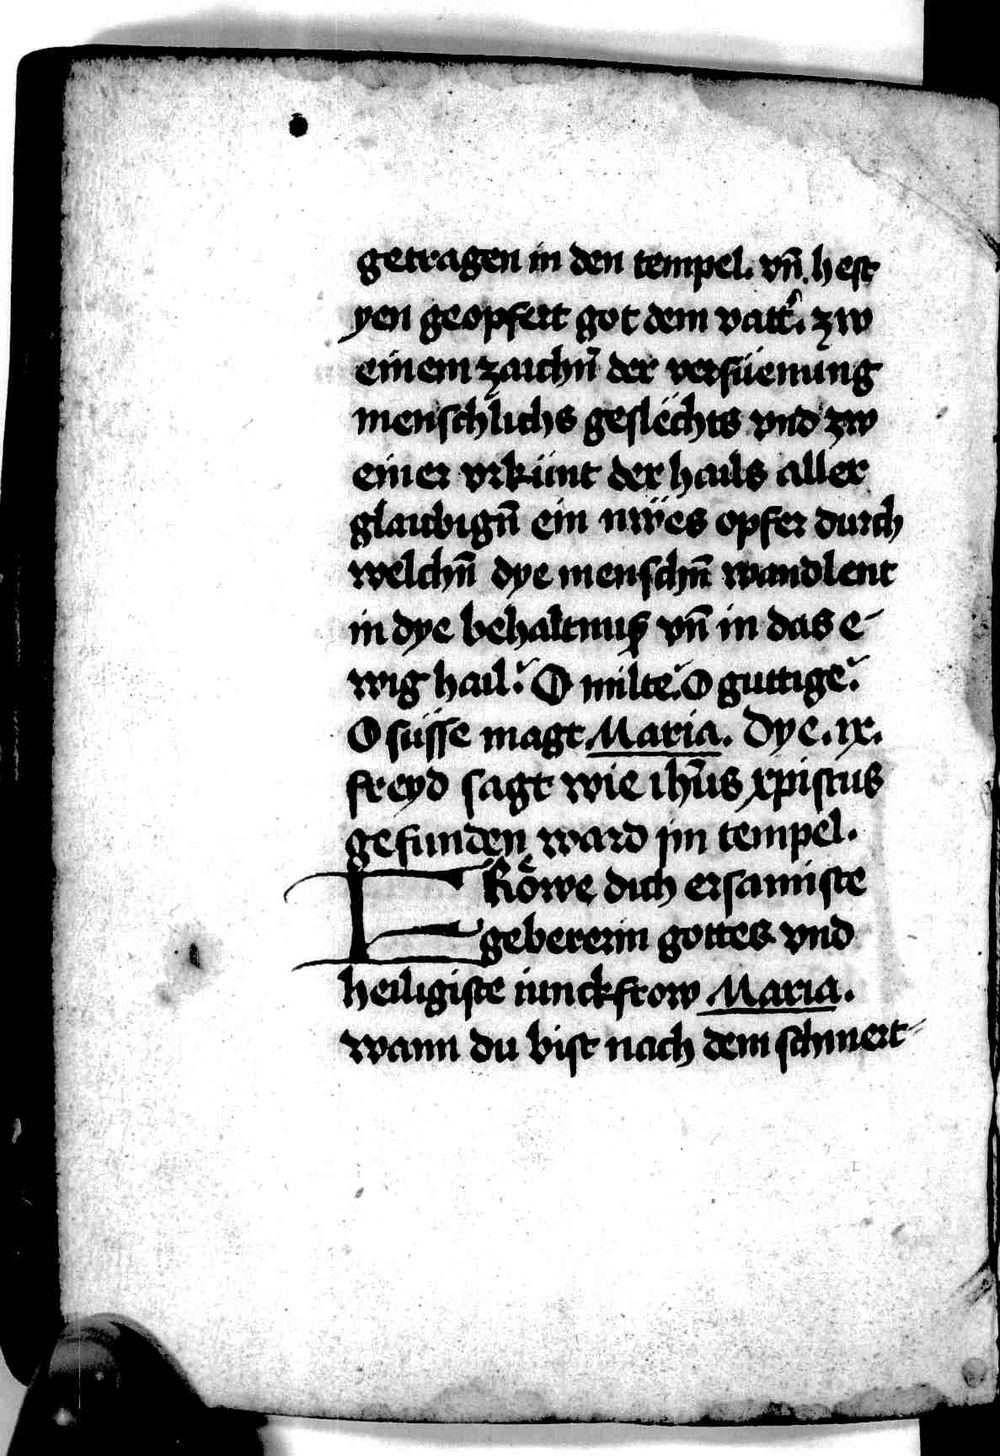 getragen in den tempel. vn̄ hest
yen geopfert got dem vatt᷑. zw
einem zaichn̄ der versüenung
menschlichs geslëchts vnd zw
einer vrkünt der hails aller
glaubign̄ ein nẅes opfer durch
welchn̄ dye menschn̄ wandlent
in dye behaltnuß vn̄ in das e-
wig hail. O milte. O guttige.
O süsse magt Maria. Dye .ix.
freyd sagt wie ih̄us xpistus
gefunden ward jm tempel.
FRöwe dich ersamiste
gebererin gottes vnd
heiligiste iunckfrow Maria.
wann du bist nach dem schmert-